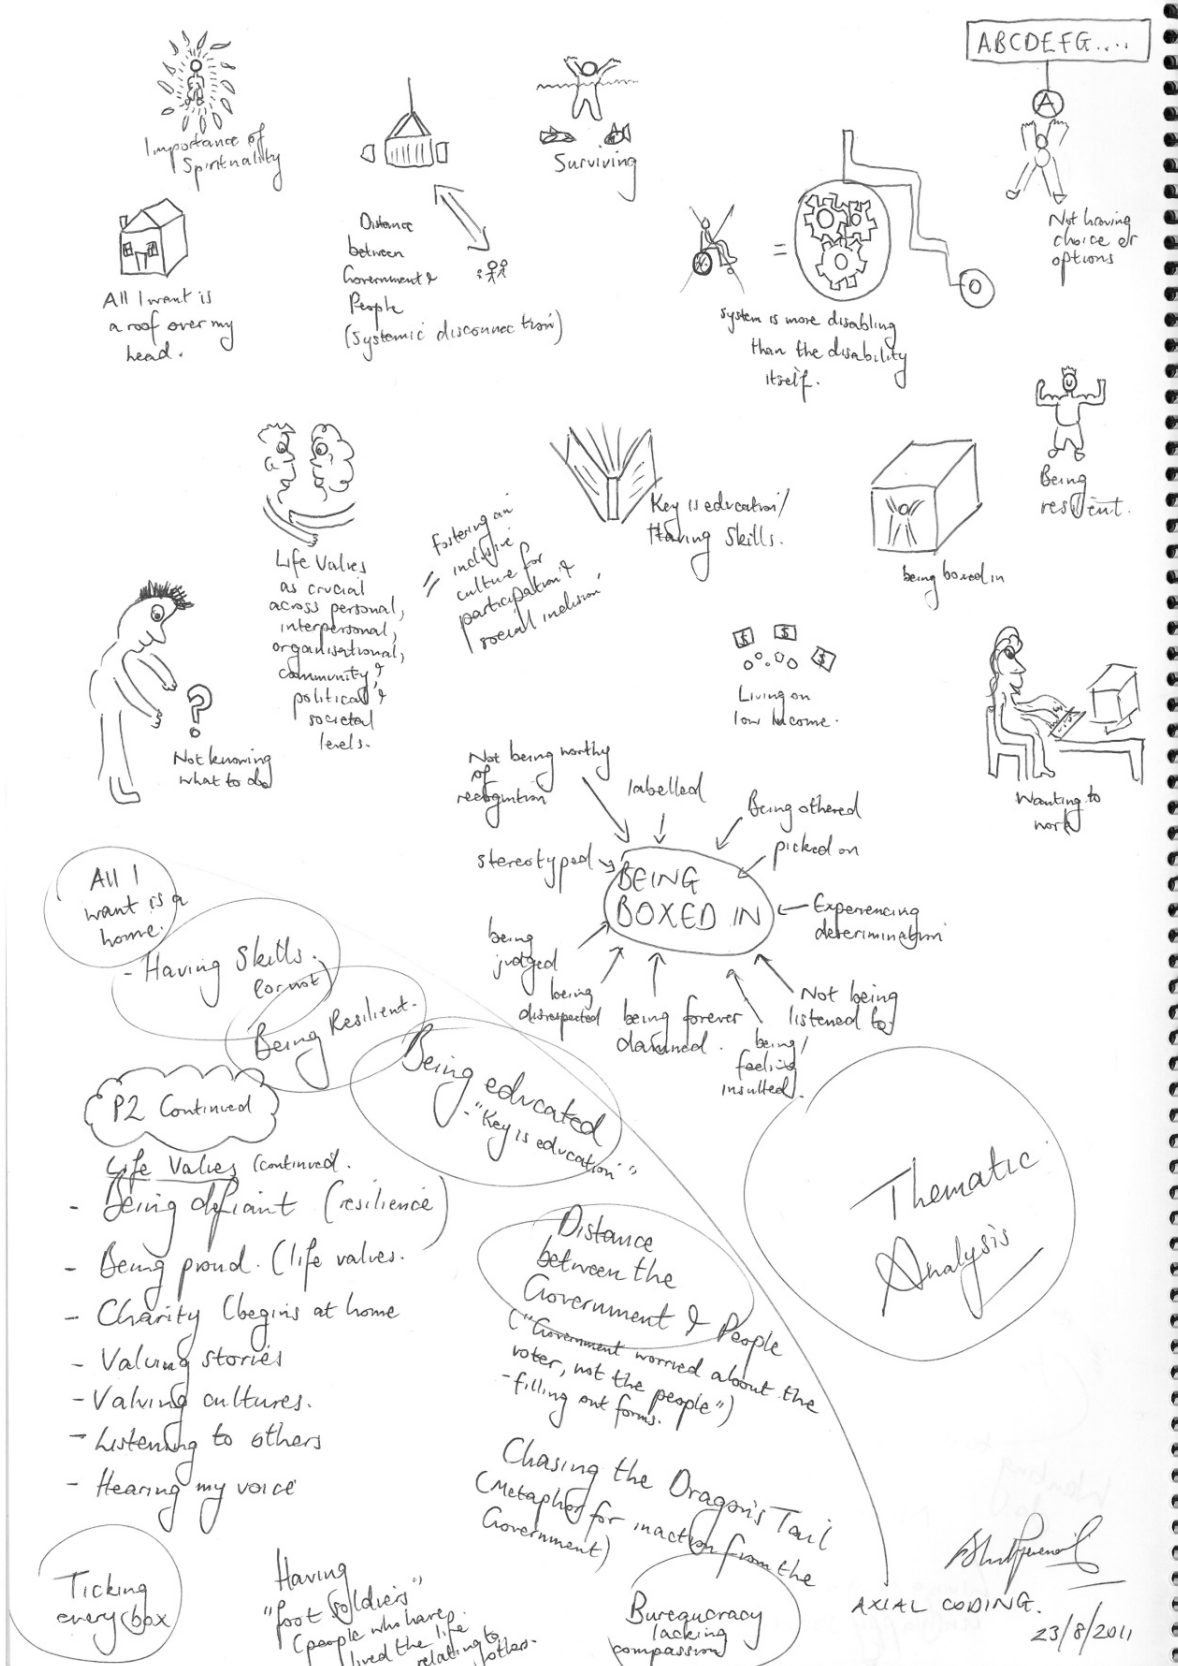 ABCDEFG....
A
Importance of
Spirituality
Surviving
Not having
choice or
options
All I want is
a roof over my
head.
Distance
between
Government &
People
(Systemic disconnection)
=
System is more disabling
than the disability
itself.
Being
resilient.
Key is education/
Having Skills.
being boxed in
Life Values
as crucial
across personal,
interpersonal,
organisational,
community &
political &
societal
levels.
= Fostering an
inclusive
culture for
participation &
social inclusion
?
Not knowing
what to do
$ $ $
Living on
low income.
Wanting to
work
Not being worthy
of
recognition
labelled
Being othered
picked on
stereotyped
BEING
BOXED IN
Experiencing
being
judged
being
disrespected
being forever
being/
feeling
insulted.
Not being
listened to
All I
want is a
home.
- Having Skills.
(or not)
Being Resilient.
Being educated
- "Key is education"
P2 Continued
Life Values (continued.
- Being defiant (resilience)
- Being proud. (life values.
- Charity (begins at home
- Valuing stories
- Valuing cultures.
- Listening to others
- Hearing my voice
Thematic
Analysis
Distance
between the
Government & People
("Government worried about the
voter, not the people")
- filling out forms.
Chasing the Dragon's Tail
(Metaphor for inaction from the
Government)
Ticking
every box
Having
"foot soldiers"
(people who have
lived the life
relating to
others.
Bureaucracy
lacking
compassion
AXIAL CODING.
23/8/2011